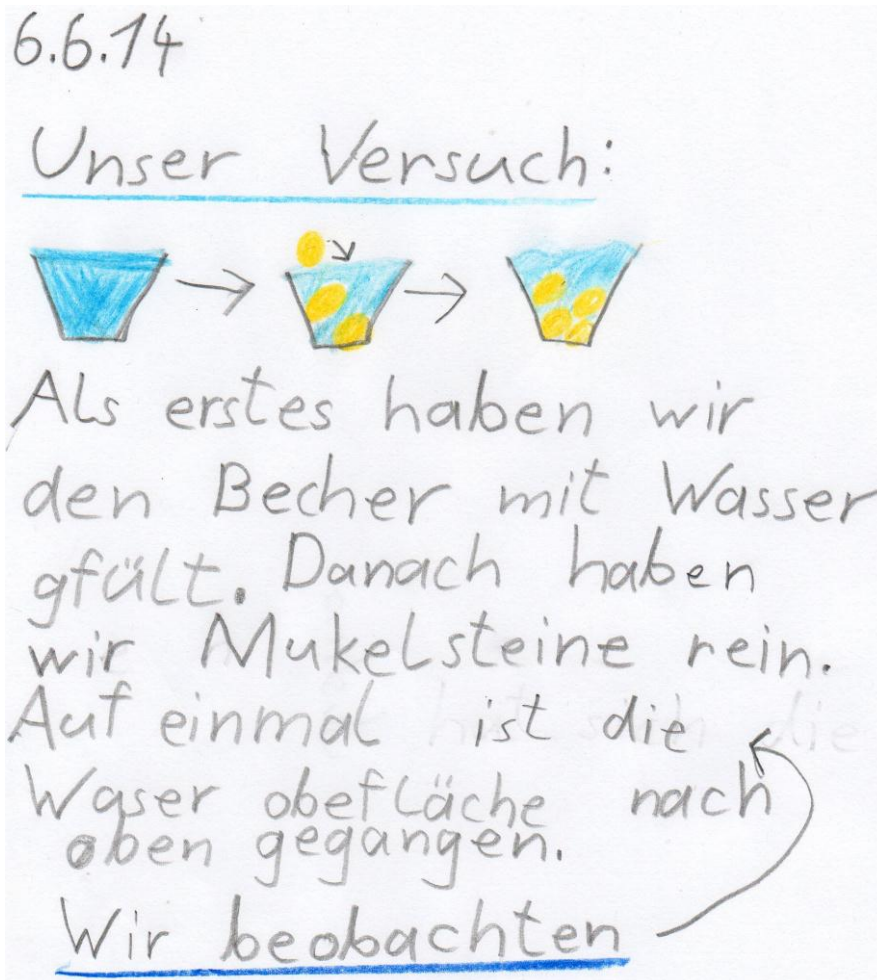 6.6.14
Unser Versuch:
Als erstes haben wir
den Becher mit Wasser
gfült. Danach haben
wir Mukelsteine rein.
Auf einmal ist die
Waser obefläche nach
oben gegangen.
Wir beobachten